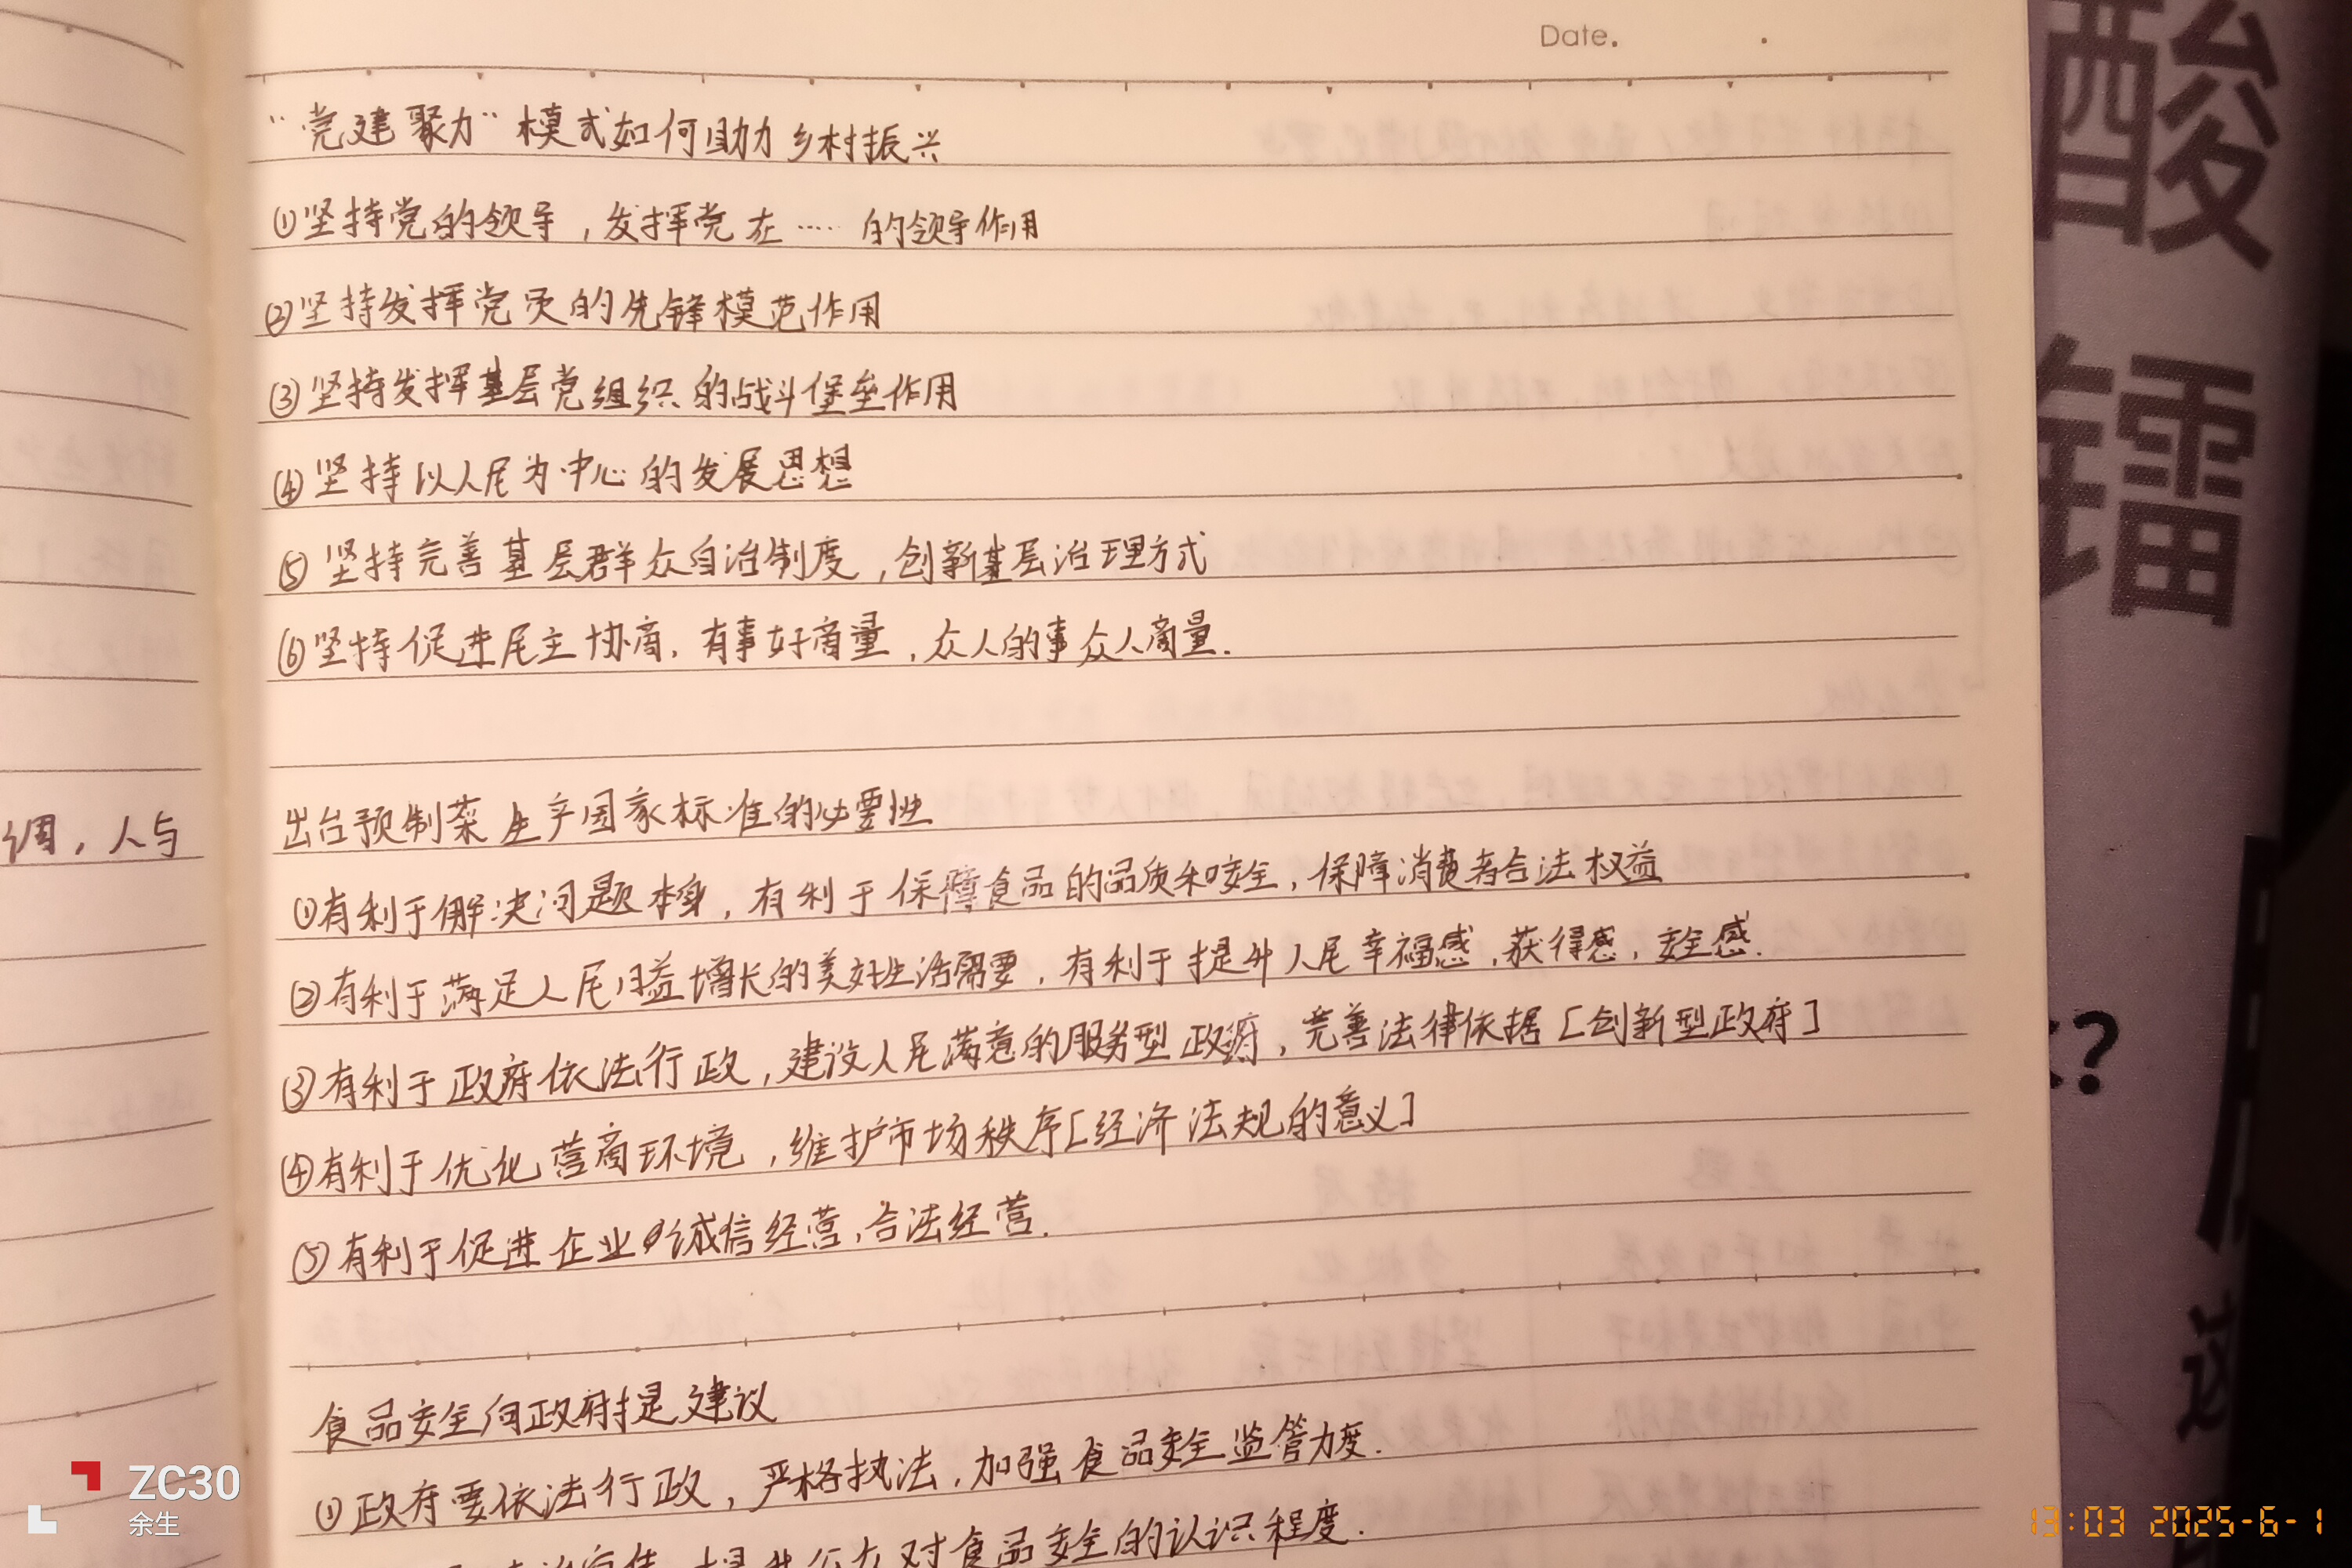 Date.
“党建聚力”模式如何助力乡村振兴
①坚持党的领导，发挥党在……的领导作用
②坚持发挥党员的先锋模范作用
③坚持发挥基层党组织的战斗堡垒作用
④坚持以人民为中心的发展思想
⑤坚持完善基层群众自治制度，创新基层治理方式
⑥坚持促进民主协商，有事好商量，众人的事众人商量.
调，人与
出台预制菜生产国家标准的必要性
①有利于解决问题本身，有利于保障食品的品质和安全，保障消费者合法权益
②有利于满足人民日益增长的美好生活需要，有利于提升人民幸福感，获得感，安全感.
③有利于政府依法行政，建设人民满意的服务型政府，完善法律依据[创新型政府]
④有利于优化营商环境，维护市场秩序[经济法规的意义]
⑤有利于促进企业诚信经营，合法经营.
食品安全向政府提建议
①政府要依法行政，严格执法，加强食品安全监管力度.
提升公众对食品安全的认识程度.
酸
镭
?
这
ZC30
余生
13:03 2025-6-1